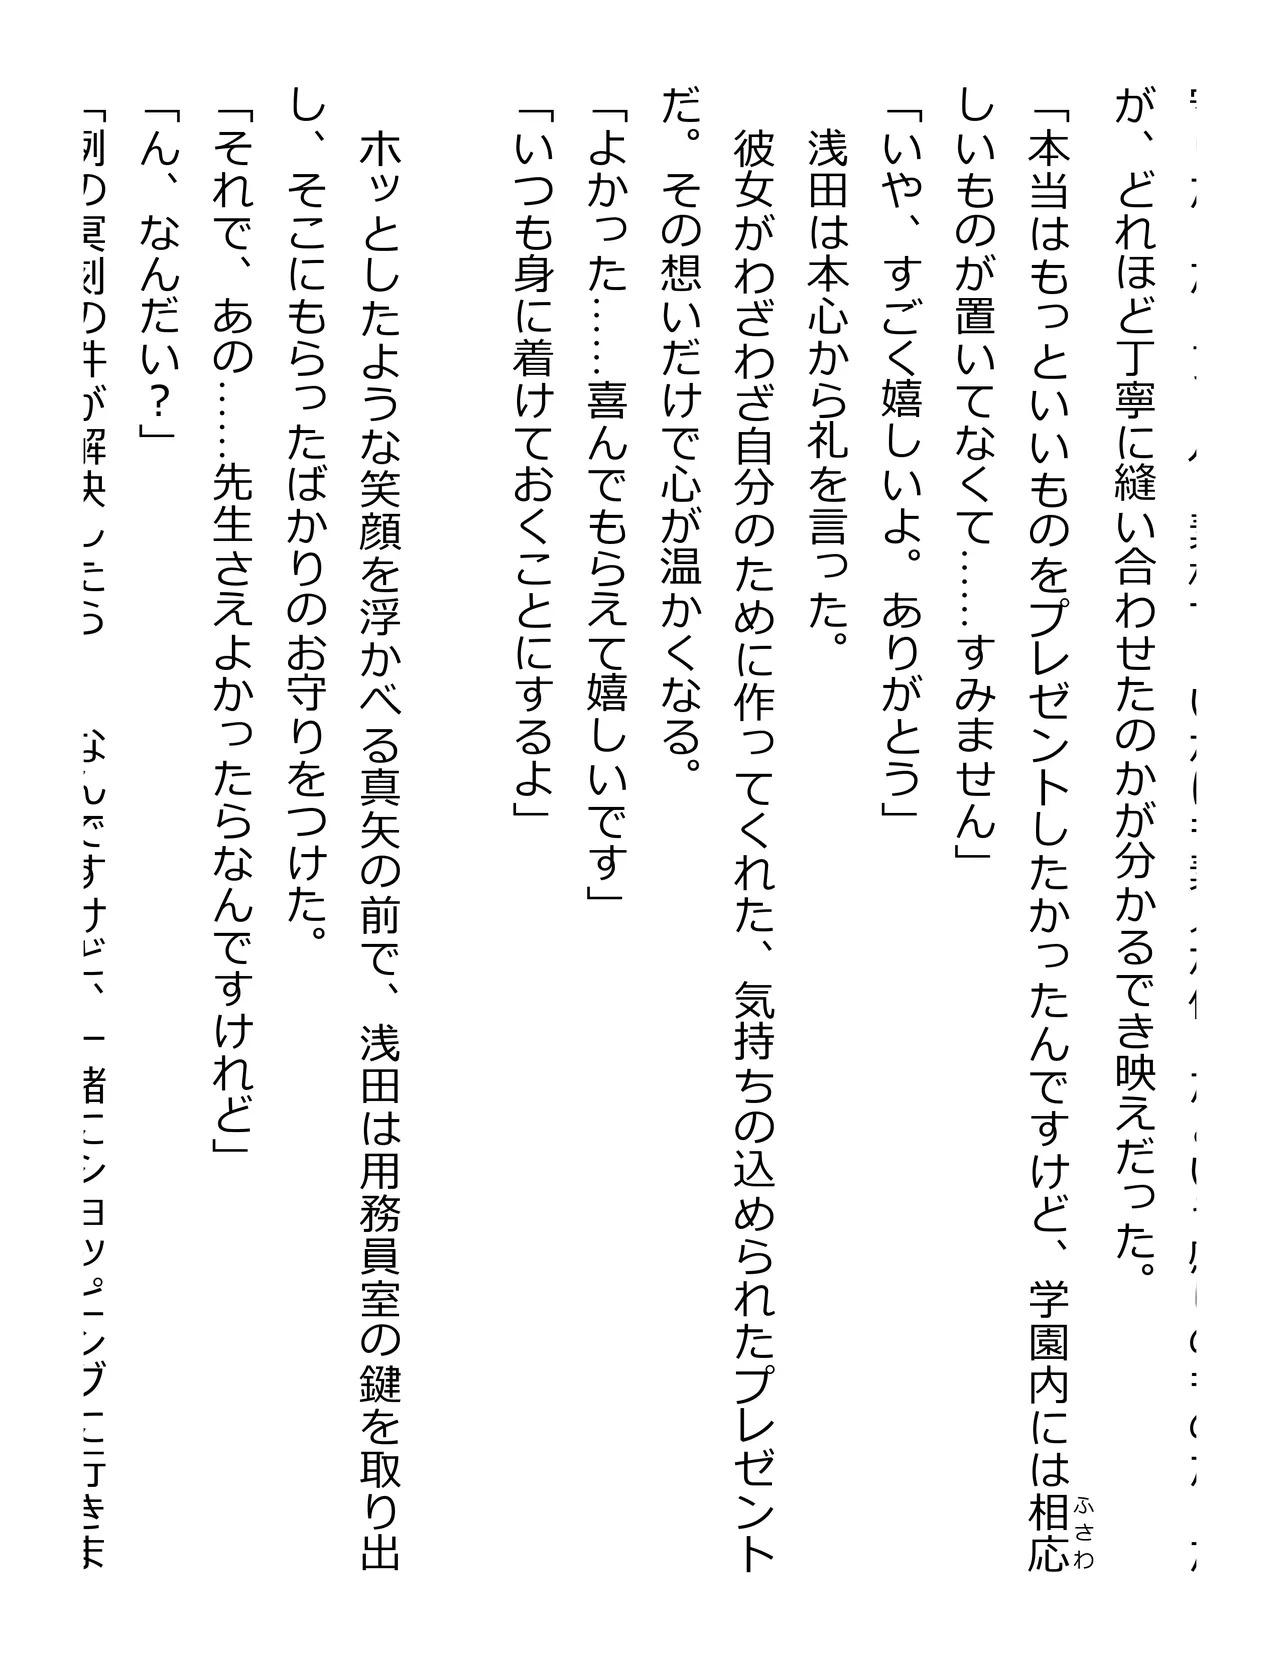 が、どれほど丁寧に縫い合わせたのかが分かるでき映えだった。
「本当はもっといいものをプレゼントしたかったんですけど、学園内には相応
ふさわ
しいものが置いてなくて……すみません」
「いや、すごく嬉しいよ。ありがとう」
浅田は本心から礼を言った。
彼女がわざわざ自分のために作ってくれた、気持ちの込められたプレゼント
だ。その想いだけで心が温かくなる。
「よかった……喜んでもらえて嬉しいです」
「いつも身に着けておくことにするよ」
ホッとしたような笑顔を浮かべる真矢の前で、浅田は用務員室の鍵を取り出
し、そこにもらったばかりのお守りをつけた。
「それで、あの……先生さえよかったらなんですけれど」
「ん、なんだい？」
「例の冥刻の件が解決したら　　なんですけど、一緒にショッピングに行きま